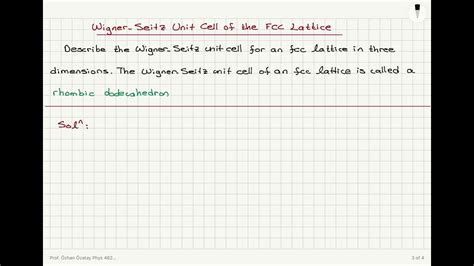 Wigner-Seitz Unit Cell of the FCC Lattice
Describe the Wigner-Seitz unit cell for an fcc lattice in three
dimensions. The Wigner-Seitz unit cell of an fcc lattice is called a
rhombic dodecahedron
Solⁿ:
Prof. Özhan Özatay Phys 482...
3 of 4